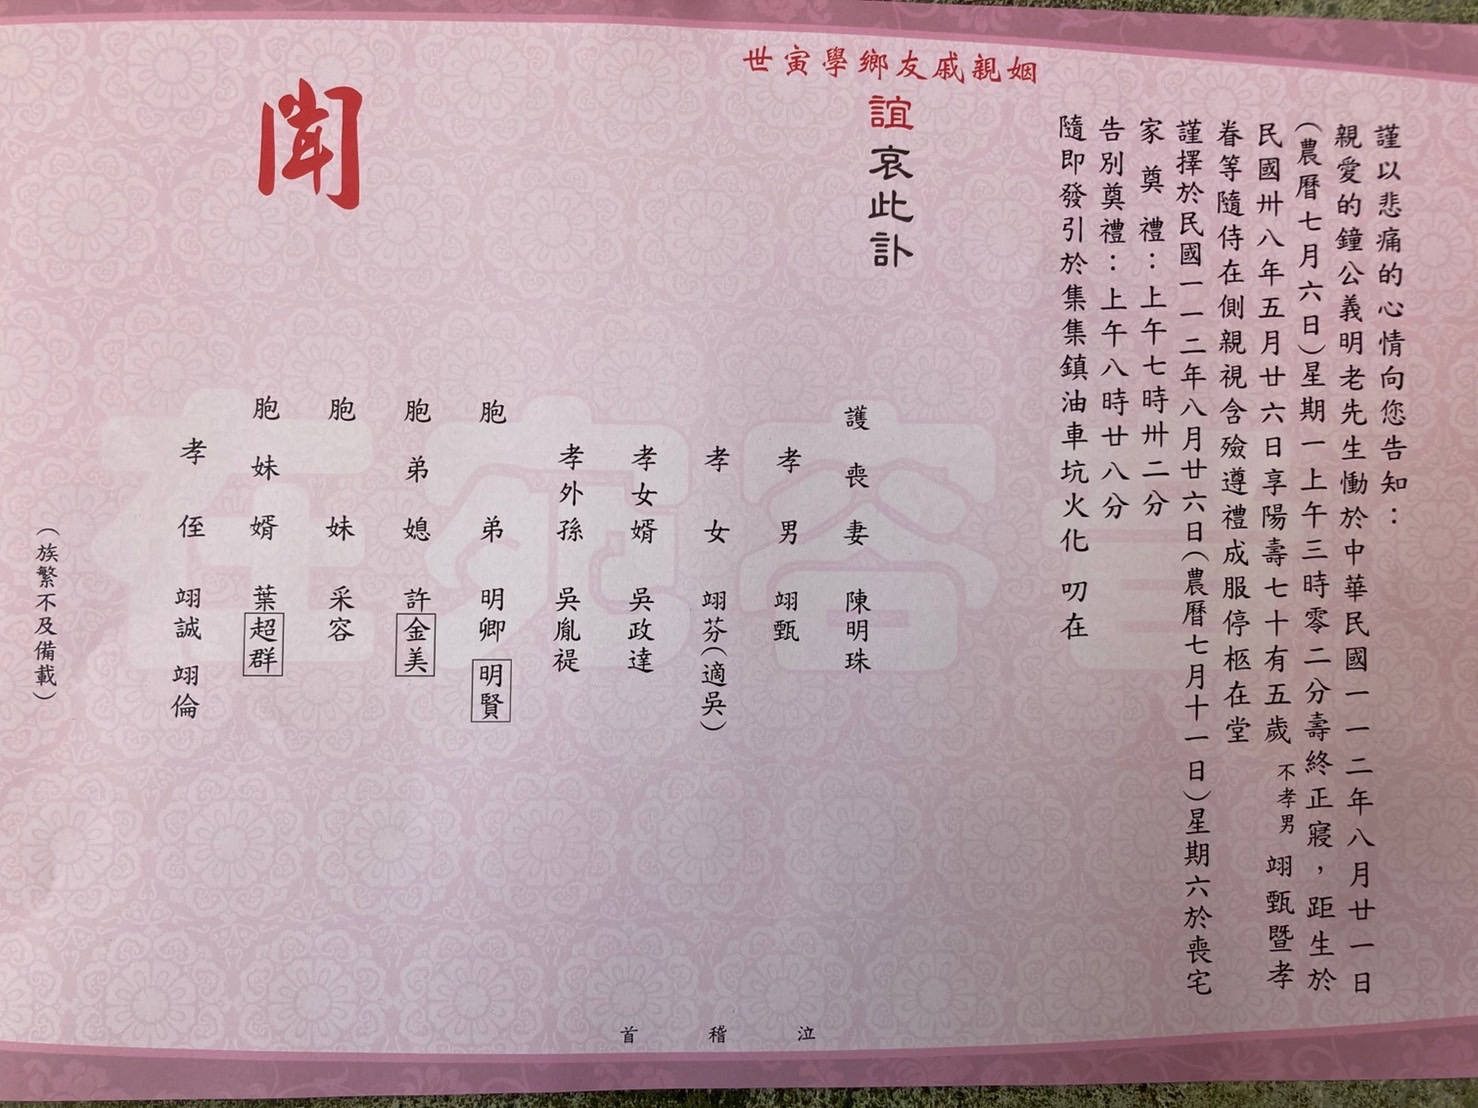 謹以悲痛的心情向您告知：
親愛的鐘公義明老先生慟於中華民國一一二年八月廿一日
(農曆七月六日)星期一上午三時零二分壽終正寢，距生於
民國卅八年五月廿六日享陽壽七十有五歲 不孝男 翊甄暨孝
眷等隨侍在側親視含殮遵禮成服停柩在堂
謹擇於民國一一二年八月廿六日(農曆七月十一日)星期六於喪宅
家奠禮：上午七時卅二分
告別奠禮：上午八時廿八分
隨即發引於集集鎮油車坑火化 叨在
姻親戚友鄉學寅世
誼哀此訃
聞
護喪妻 陳明珠
孝男 翊甄
孝女 翊芬(適吳)
孝女婿 吳政達
孝外孫 吳胤禔
胞弟 明卿 明賢
胞弟媳 許金美
胞妹 采容
胞妹婿 葉超群
孝侄 翊誠 翊倫
(族繁不及備載)
泣稽首